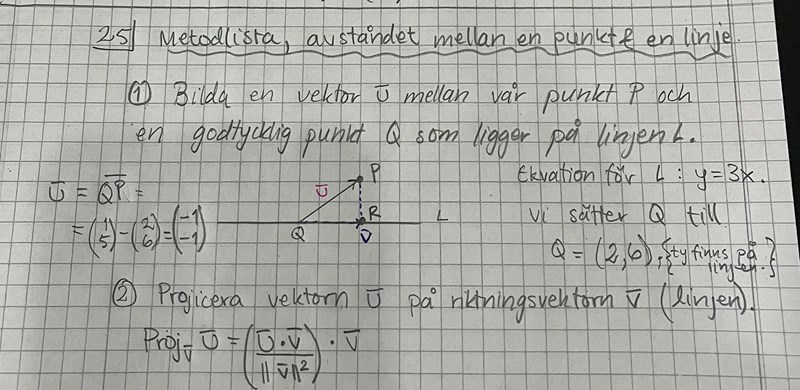 25) Metodlista, avståndet mellan en punkt & en linje.
① Bilda en vektor ū mellan vår punkt P och
en godtycklig punkt Q som ligger på linjen L.
Ekvation för L : y = 3x.
ū = QP =
= (1 5) - (2 6) = (-1 -1)
ū P
R
Q v̄ L
vi sätter Q till
Q = (2,6), {ty finns på
linjen.}
② Projicera vektorn ū på riktningsvektorn v̄ (linjen).
Proj_v̄ ū = (ū · v̄ / ||v̄||²) · v̄